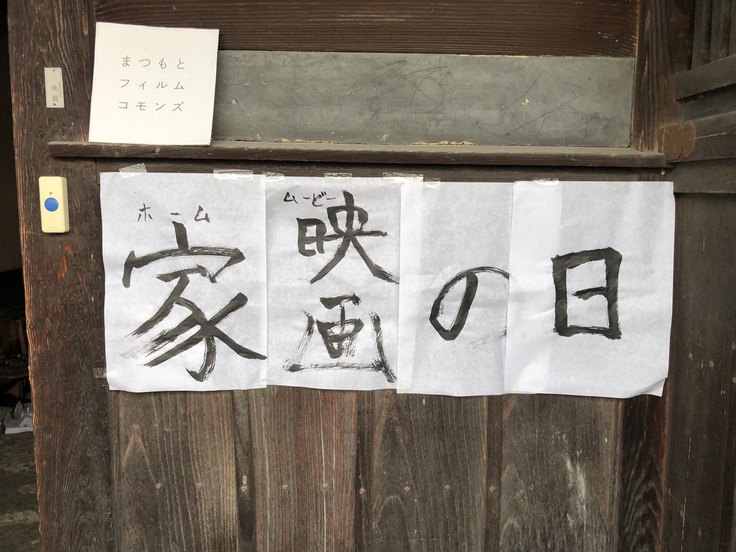 まつもと
フィルム
コモンズ
ホーム ムービー
家映画の日